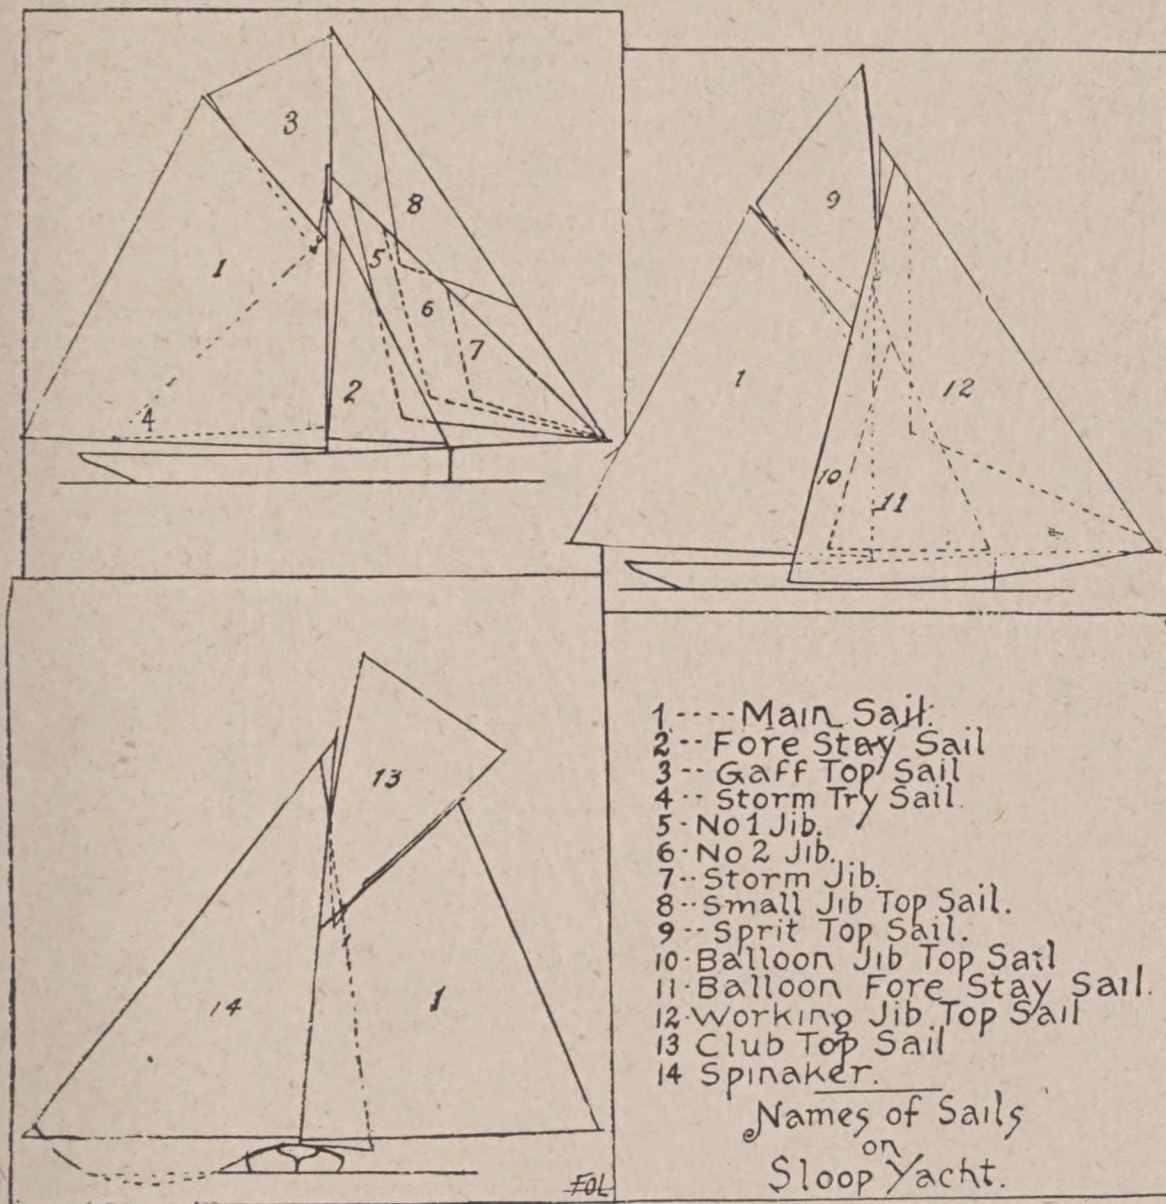 3
8
1
5
6
7
2
4
9
1
12
10
11
13
14
1
1----Main Sail.
2--Fore Stay Sail
3--Gaff Top Sail
4--Storm Try Sail.
5-No1 Jib.
6-No2 Jib.
7--Storm Jib.
8--Small Jib Top Sail.
9--Sprit Top Sail.
10-Balloon Jib Top Sail
11-Balloon Fore Stay Sail.
12-Working Jib Top Sail
13 Club Top Sail
14 Spinaker.
Names of Sails
on
Sloop Yacht.
FOL